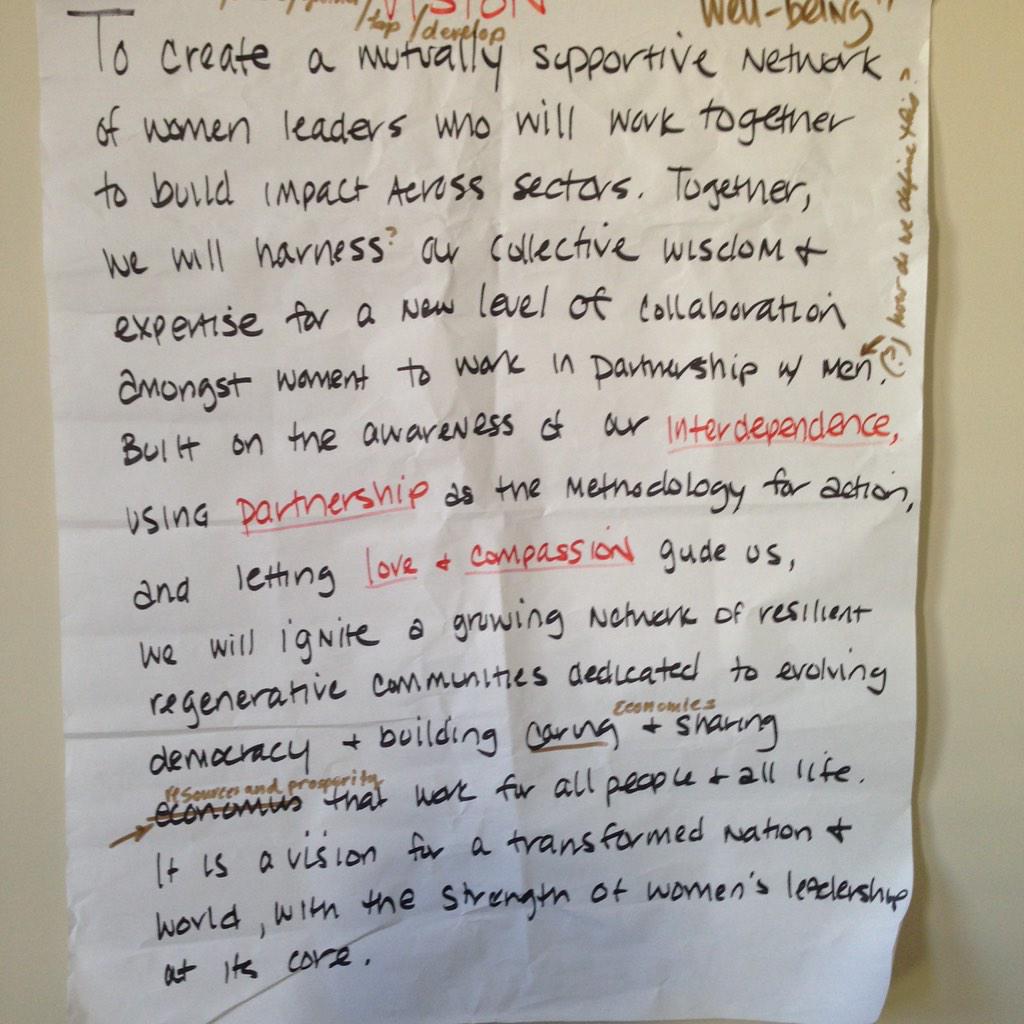 VISION
/tap/develop
well-being"
To create a mutually supportive network
of women leaders who will work together
to build impact across sectors. Together,
we will harness? our collective wisdom +
expertise for a new level of collaboration
amongst woment to work in partnership w/ men.
(?) how do we define this?
Built on the awareness of our interdependence,
using partnership as the methodology for action,
and letting love + compassion gude us,
we will ignite a growing network of resilient
regenerative communities dedicated to evolving
economies
democracy + building caring + sharing
resources and prosperity
economies that work for all people + all life.
It is a vision for a transformed nation +
world, with the strength of women's leadership
at its core.